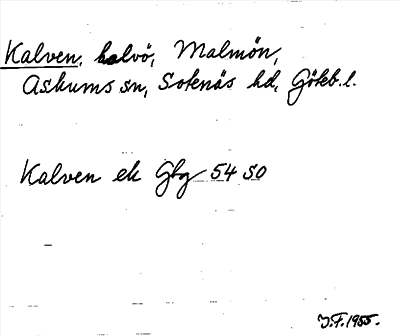 Kalven, halvö, Malmön,
Askums sn, Sotenäs hd, Göteb. l.
Kalven ek Gbg 54 SO
J.F. 1955.